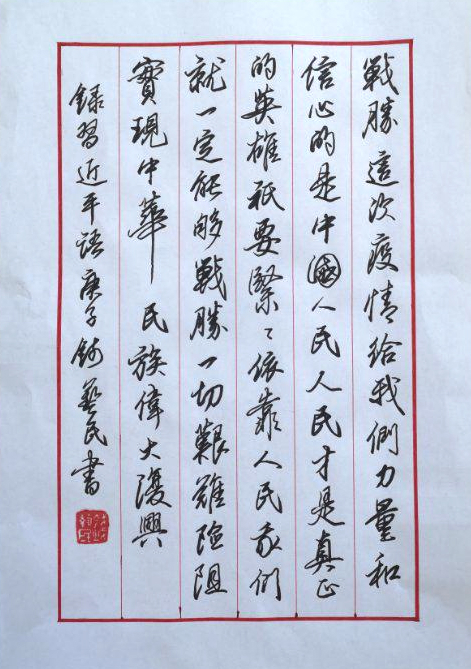 戰勝這次疫情給我們力量和
信心的是中國人民人民才是真正
的英雄祇要緊〻依靠人民我们
就一定能够戰勝一切艱難險阻
實現中華民族偉大復興
錄習近平語庚子 藝民書